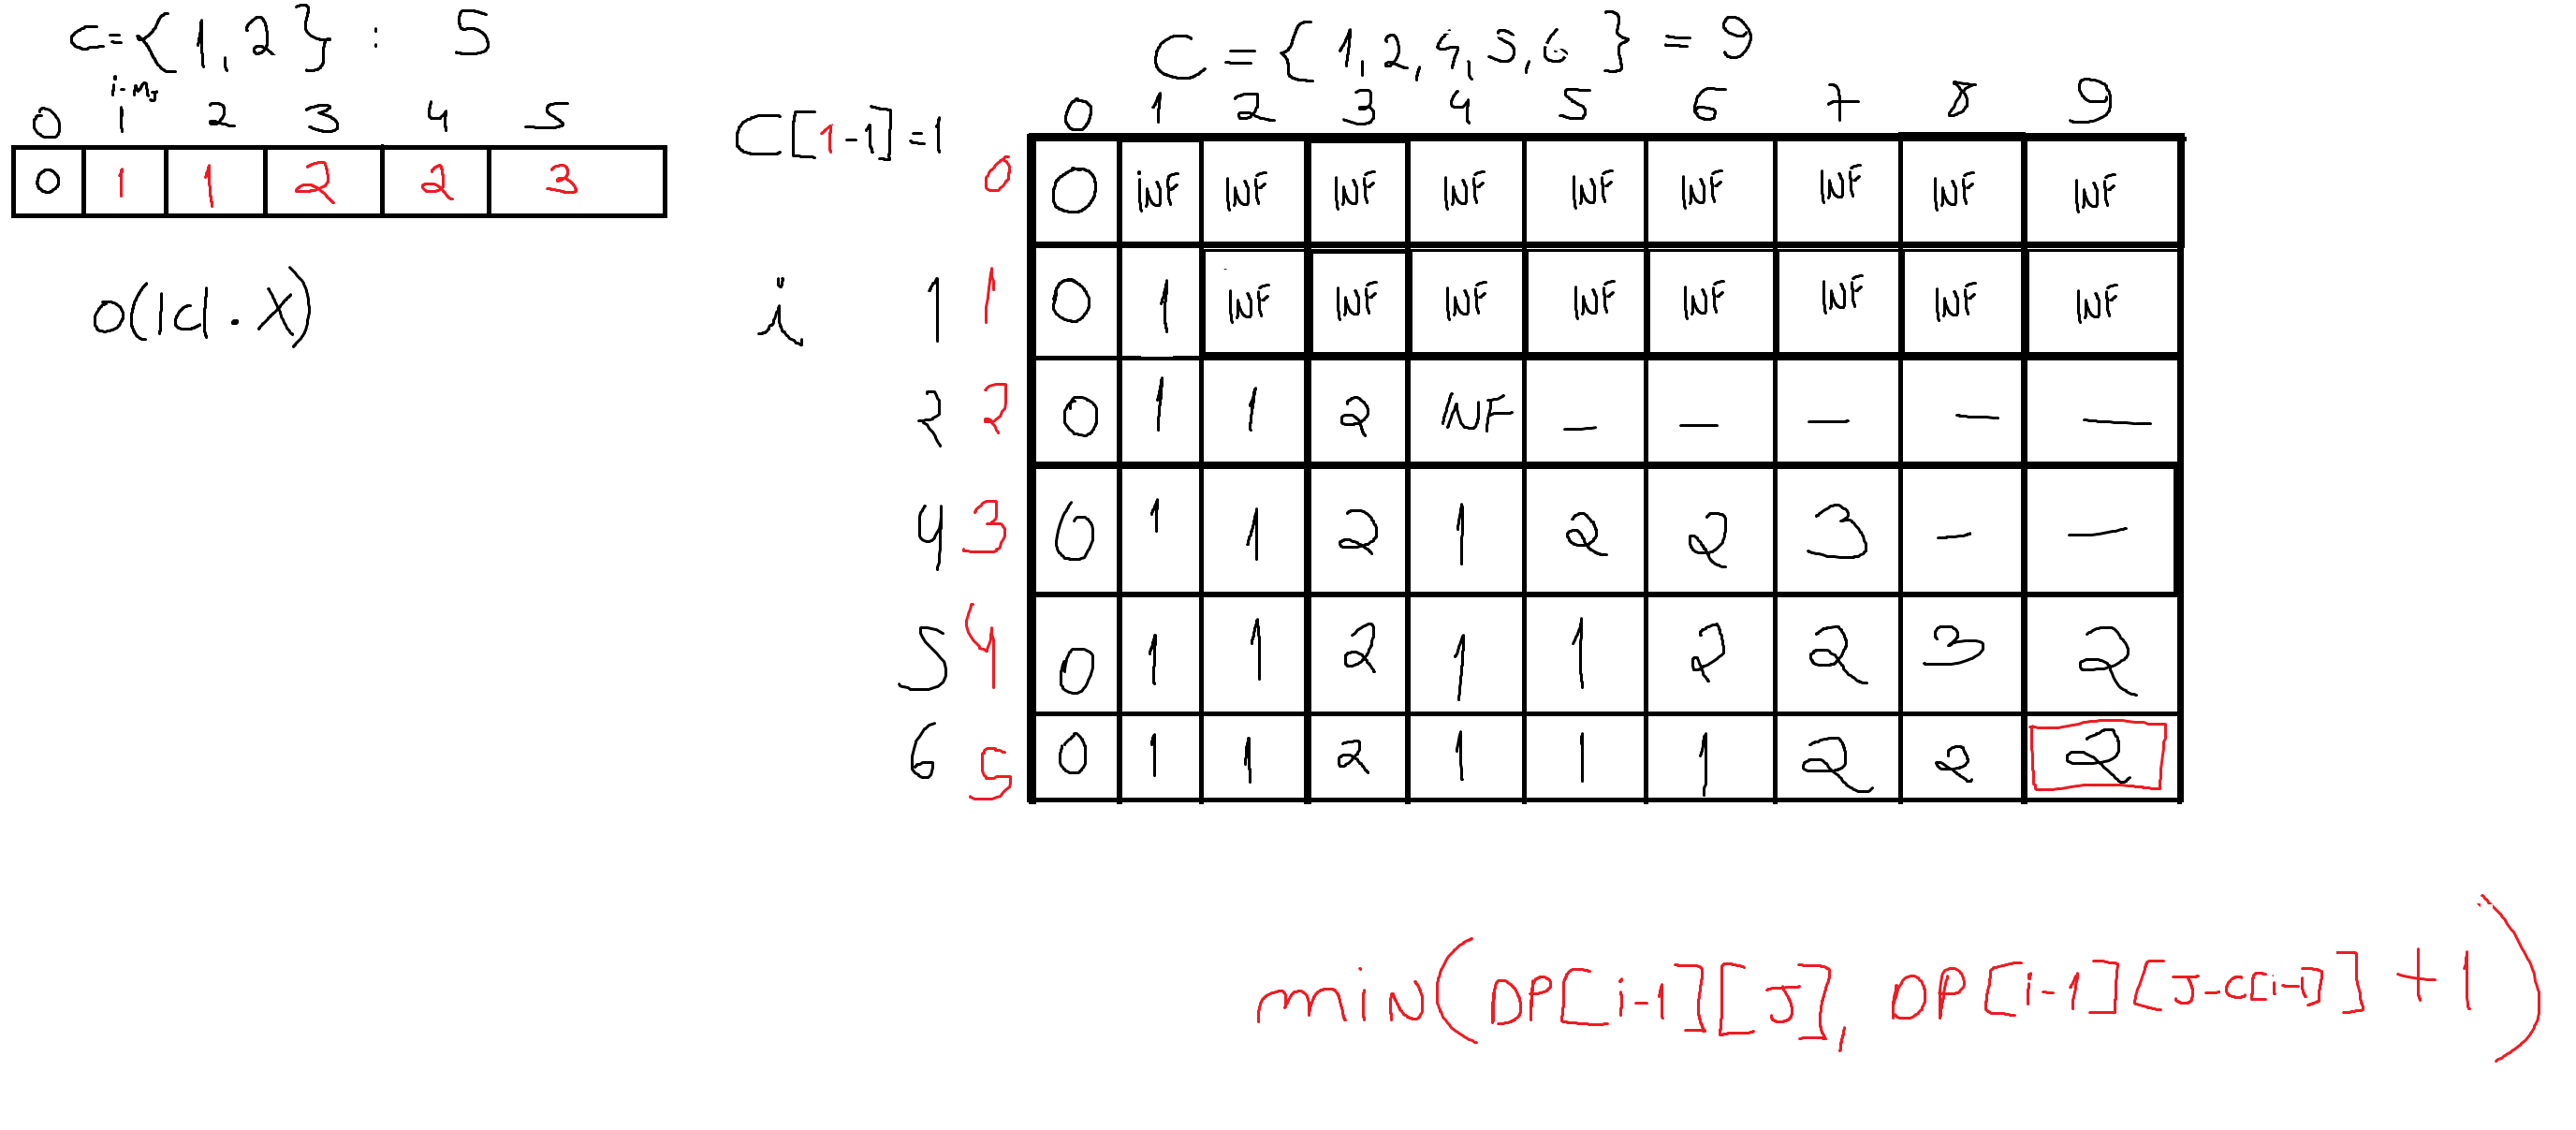 C={1,2} : 5
i-mj
0 1 2 3 4 5
0 1 1 2 2 3
O(|C|.X)
C={1,2,4,5,6} = 9
C[1-1]=1
0 1 2 3 4 5 6 7 8 9
0 0 iNF INF INF INF INF INF INF INF INF
i 1 1 0 1 INF INF INF INF INF INF INF INF
2 2 0 1 1 2 INF – – – – –
4 3 0 1 1 2 1 2 2 3 – –
5 4 0 1 1 2 1 1 2 2 3 2
6 5 0 1 1 2 1 1 1 2 2 2
min(DP[i-1][J], DP[i-1][J-C[i-1]] +1)